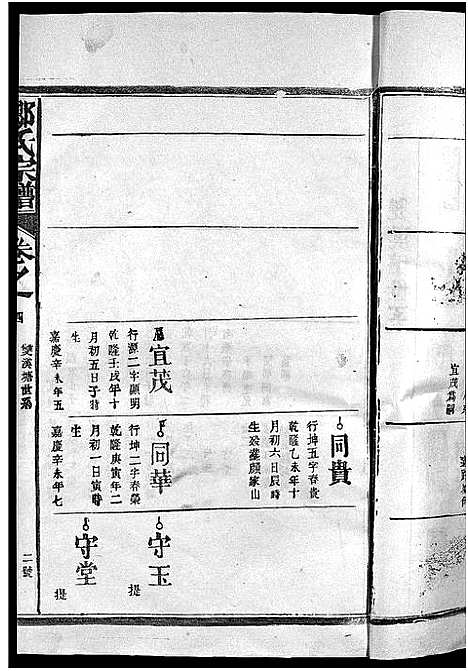 宜茂爲嗣
同貴
行坤五字春貴
乾隆乙未年十
月初六日辰時
生公葬顧家山
宜茂
行源二字顯明
乾隆壬戌年十
月初五日子時
生
嘉慶辛未年五
同華
行坤二字春榮
乾隆庚寅年二
月初一日寅時
嘉慶辛未年七
守玉
提
守堂
提
鄭氏宗譜
卷之一
四
雙溪塘世系
二號